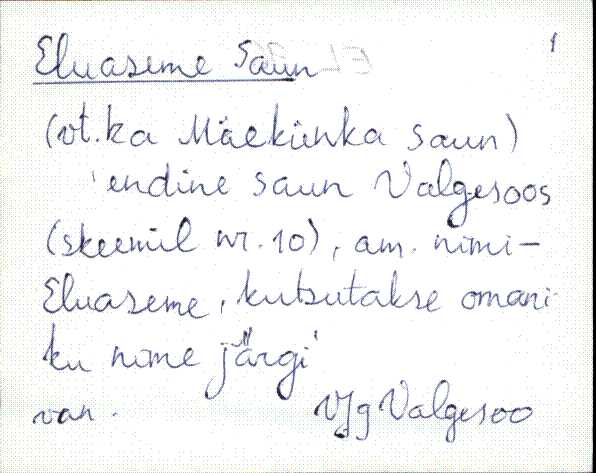 Eluaseme Saun
1
(vt. ka Mäekünka saun)
'endine saun Valgesoos
(skeemil nr. 10), am. nimi-
Eluaseme, kutsutakse omani-
ku nime järgi'
van. Vjg Valgesoo